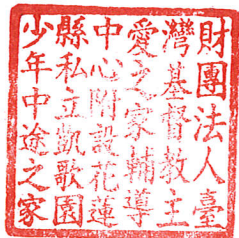 財團法人臺
灣基督教主
愛之家輔導
中心附設花蓮
縣私立凱歌園
少年中途之家